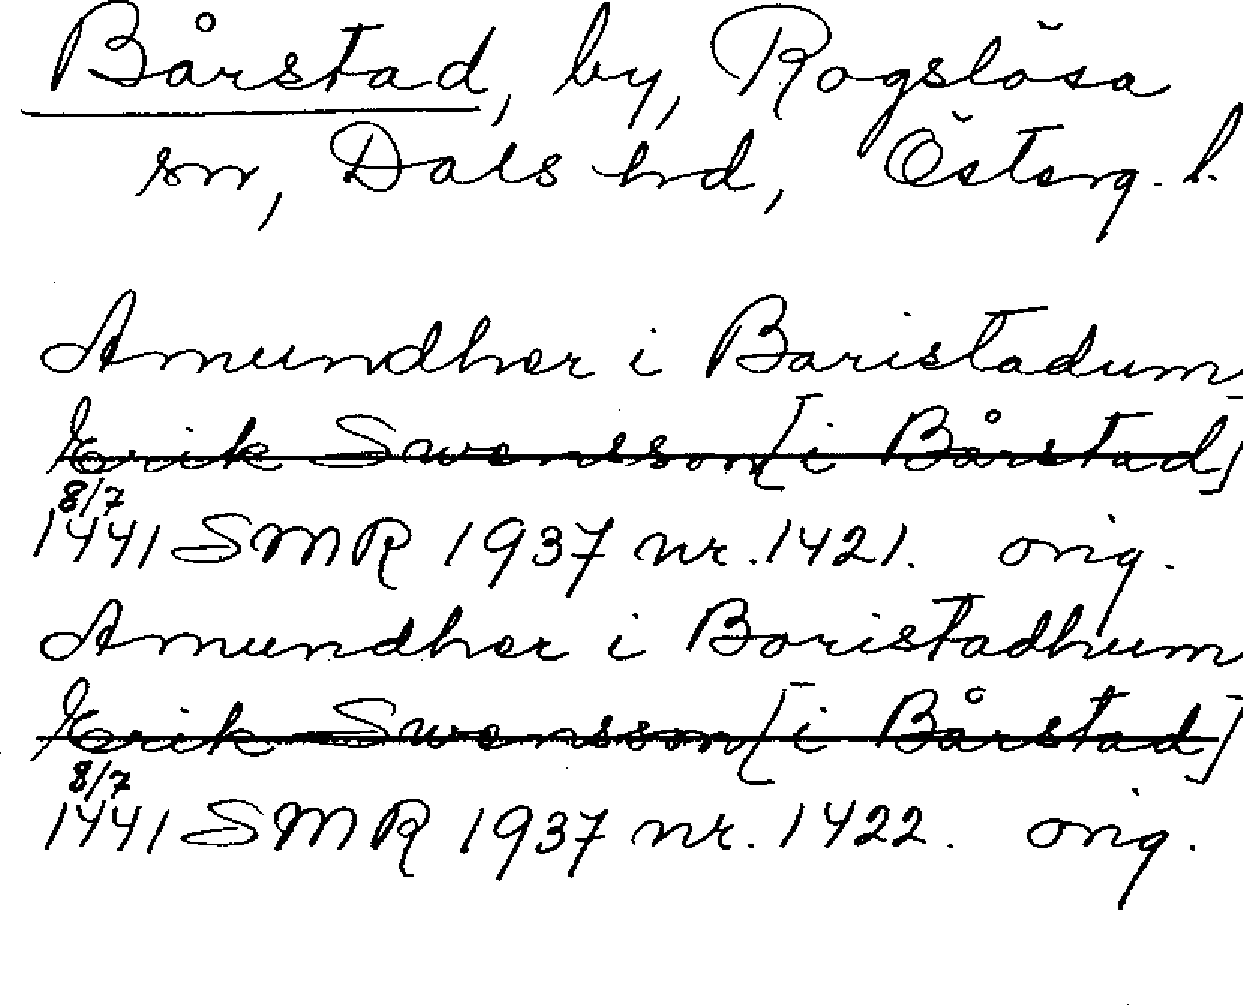 Bårstad, by, Rogslösa
sn, Dals hd, Österg. l.
Amundher i Baristadum,
Erik Swensson [i Bårstad]
8/7
1441 SMR 1937 nr. 1421. orig.
Amundher i Boristadhum
Erik Swensson [i Bårstad]
8/7
1441 SMR 1937 nr. 1422. orig.